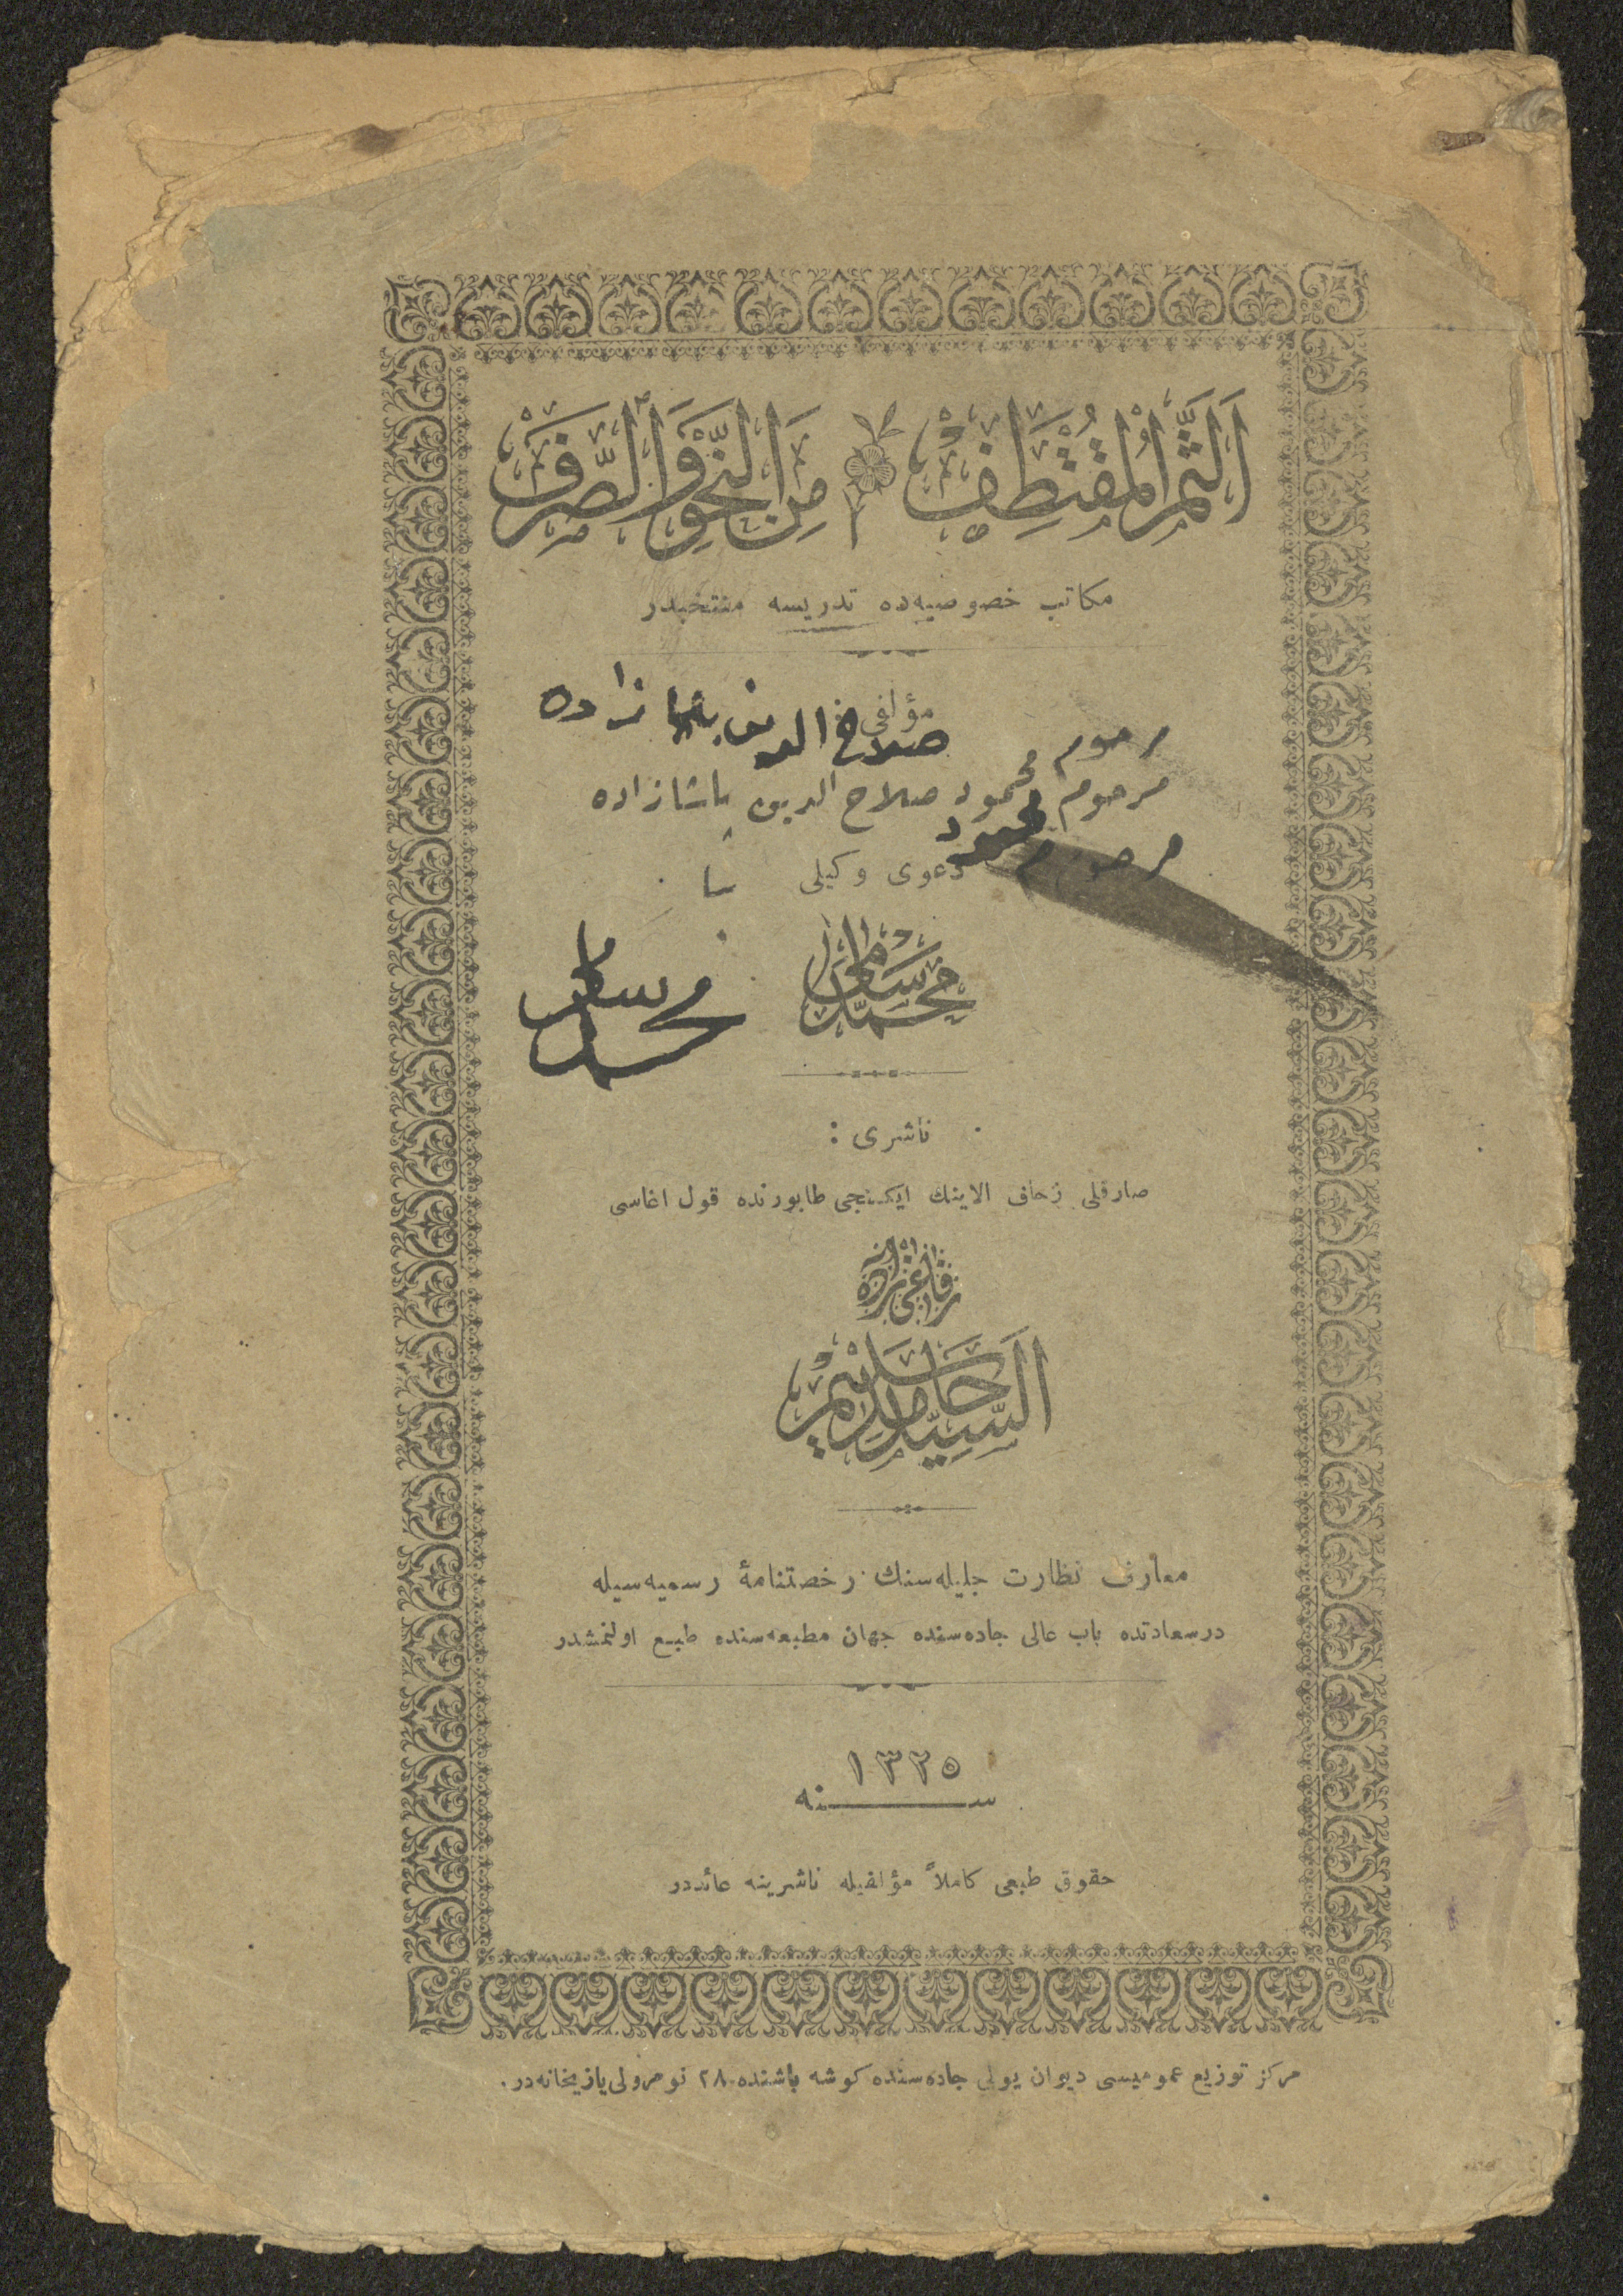 اَلثَّمَرُ الْمُقْتَطَفْ مِنَ النَّحْوِ وَالصَّرَفْ
مكاتب خصوصيه‌ده تدريسه منتخبدر
مؤلفی :
صلاح الدين پاشا زاده
مرحوم
مرحوم محمود صلاح الدين پاشازاده
مرحوم محمود
دعوی وكيلی
محمد سامی
محمد سامی
ناشری :
صارقلی زحاف الاينك ايكنجی طابورنده قول اغاسی
رفاعی زاده
السيد حامد سليم
معارف نظارت جليله‌سنك رخصتنامۀ رسميه‌سيله
درسعادتده باب عالی جاده‌سنده جهان مطبعه‌سنده طبع اولنمشدر
١٣٢٥
سنه
حقوق طبعی كاملاً مؤلفيله ناشرينه عائددر
مركز توزيع عموميسی ديوان يولی جاده‌سنده كوشه باشنده ٢٨ نومرولی يازيخانه‌در.